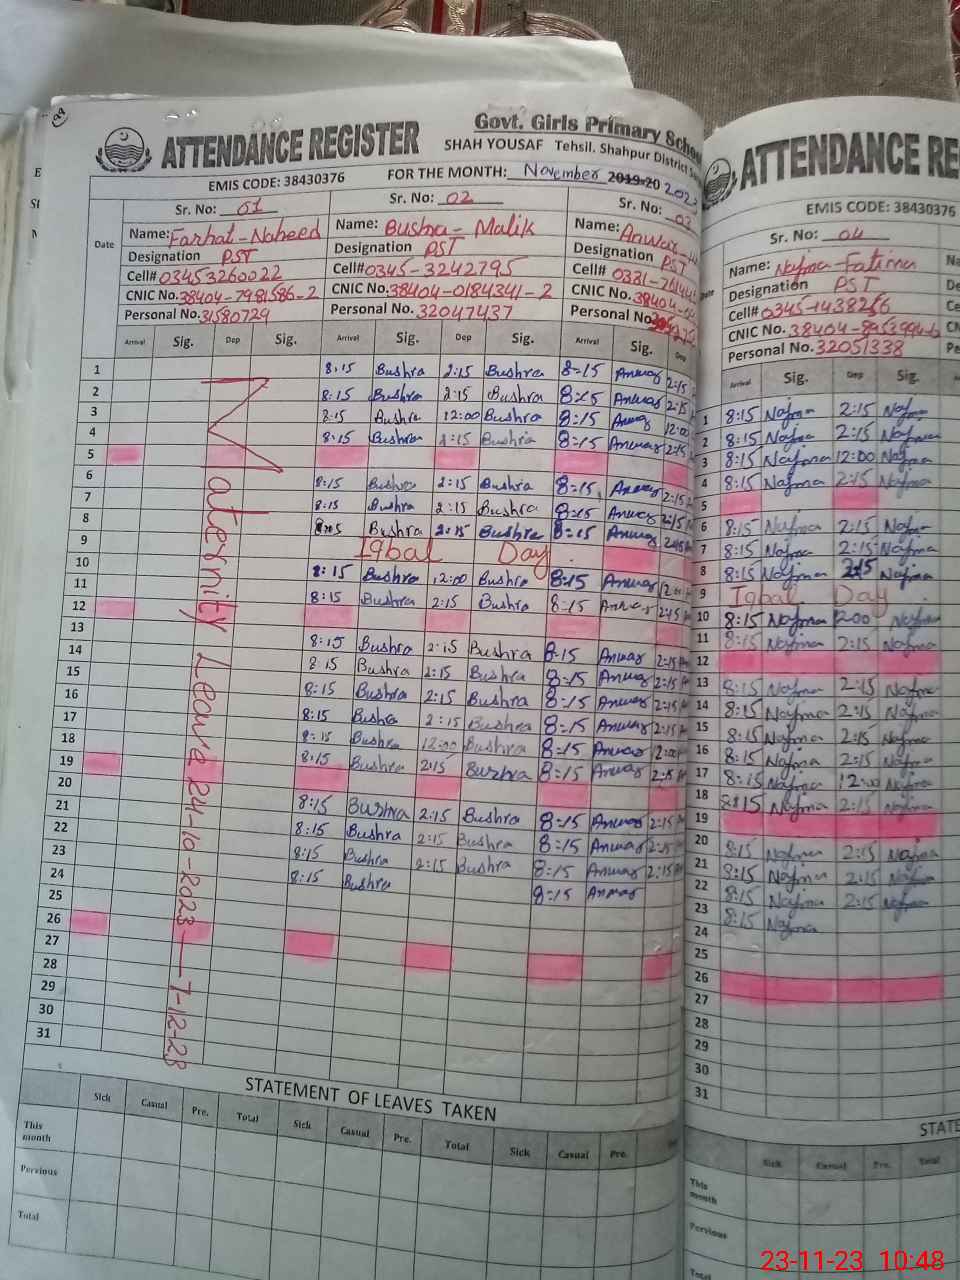 ATTENDANCE REGISTER
Govt. Girls Primary
SHAH YOUSAF Tehsil. Shahpur District
EMIS CODE: 38430376 FOR THE MONTH: November 2019-20 2023
Date
Sr. No: 01
Name: Farhat-Naheed
Designation PST
Cell# 03453260022
CNIC No. 38404-7981586-2
Personal No. 31580729
Sr. No: 02
Name: Bushra-Malik
Designation PST
Cell# 0345-3242795
CNIC No. 38404-0184341-2
Personal No. 32047437
Sr. No: 03
Name: Anwar
Designation PST
Cell#
CNIC No. 38404
Personal No.
Arrival Sig. Dep Sig. Arrival Sig. Dep Sig. Arrival Sig. Dep
1 8:15 Bushra 2:15 Bushra 8:15 Anwar 2:15
2 8:15 Bushra 2:15 Bushra 8:15 Anwar 2:15
3 8:15 Bushra 12:00 Bushra 8:15 Anwar 12:00
4 8:15 Bushra 2:15 Bushra 8:15 Anwar 2:15
5
6 8:15 Bushra 2:15 Bushra 8:15 Anwar 2:15
7 8:15 Bushra 2:15 Bushra 8:15 Anwar 2:15
8 8:15 Bushra 2:15 Bushra 8:15 Anwar 2:15
9 Iqbal Day
10 8:15 Bushra 12:00 Bushra 8:15 Anwar 12:00
11 8:15 Bushra 2:15 Bushra 8:15 Anwar 2:15
12
13 8:15 Bushra 2:15 Bushra 8:15 Anwar 2:15
14 8:15 Bushra 2:15 Bushra 8:15 Anwar 2:15
15 8:15 Bushra 2:15 Bushra 8:15 Anwar 2:15
16 8:15 Bushra 2:15 Bushra 8:15 Anwar 2:15
17 8:15 Bushra 12:00 Bushra 8:15 Anwar 12:00
18 8:15 Bushra 2:15 Bushra 8:15 Anwar 2:15
19
20 8:15 Bushra 2:15 Bushra 8:15 Anwar 2:15
21 8:15 Bushra 2:15 Bushra 8:15 Anwar 2:15
22 8:15 Bushra 2:15 Bushra 8:15 Anwar 2:15
23 8:15 Bushra 8:15 Anwar
24
25
26
27
28
29
30
31
Maternity Leave 24-10-2023 — 7-12-23
STATEMENT OF LEAVES TAKEN
Sick Casual Pre. Total Sick Casual Pre. Total Sick Casual Pre.
This month
Pervious
Total
ATTENDANCE
EMIS CODE: 38430376
Sr. No: 04
Name: Najma-Fatima
Designation PST
Cell# 0345-1438256
CNIC No.
Personal No. 32051338
Arrival Sig. Dep Sig.
1 8:15 Najma 2:15 Najma
2 8:15 Najma 2:15 Najma
3 8:15 Najma 12:00 Najma
4 8:15 Najma 2:15 Najma
5
6 8:15 Najma 2:15 Najma
7 8:15 Najma 2:15 Najma
8 8:15 Najma 2:15 Najma
9 Iqbal Day
10 8:15 Najma 12:00 Najma
11 8:15 Najma 2:15 Najma
12
13 8:15 Najma 2:15 Najma
14 8:15 Najma 2:15 Najma
15 8:15 Najma 2:15 Najma
16 8:15 Najma 2:15 Najma
17 8:15 Najma 12:00 Najma
18 8:15 Najma 2:15 Najma
19
20 8:15 Najma 2:15 Najma
21 8:15 Najma 2:15 Najma
22 8:15 Najma 2:15 Najma
23 8:15 Najma
24
25
26
27
28
29
30
31
Sick Casual Pre. Total
This month
Pervious
Total
23-11-23 10:48